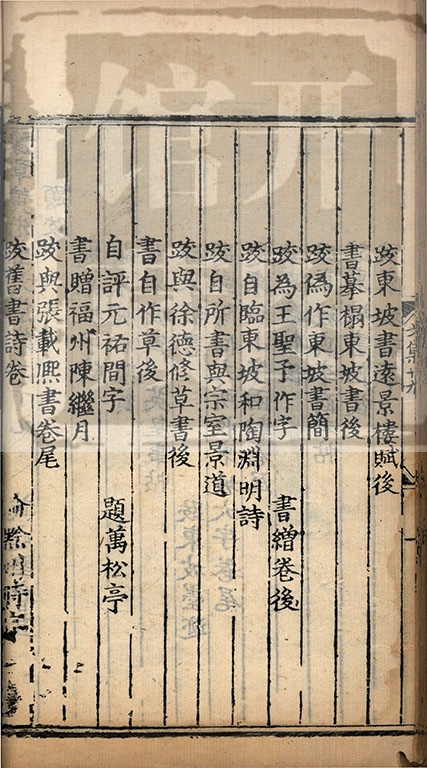 跋東坡書遠景樓賦後
書摹榻東坡書後
跋偽作東坡書簡
跋為王聖予作字 書繒卷後
跋自臨東坡和陶淵明詩
跋自所書與宗室景道
跋與徐德修草書後
書自作草後
自評元祐間字 題萬松亭
書贈福州陳繼月
跋與張載熈書卷尾
跋舊書詩卷
开
馆